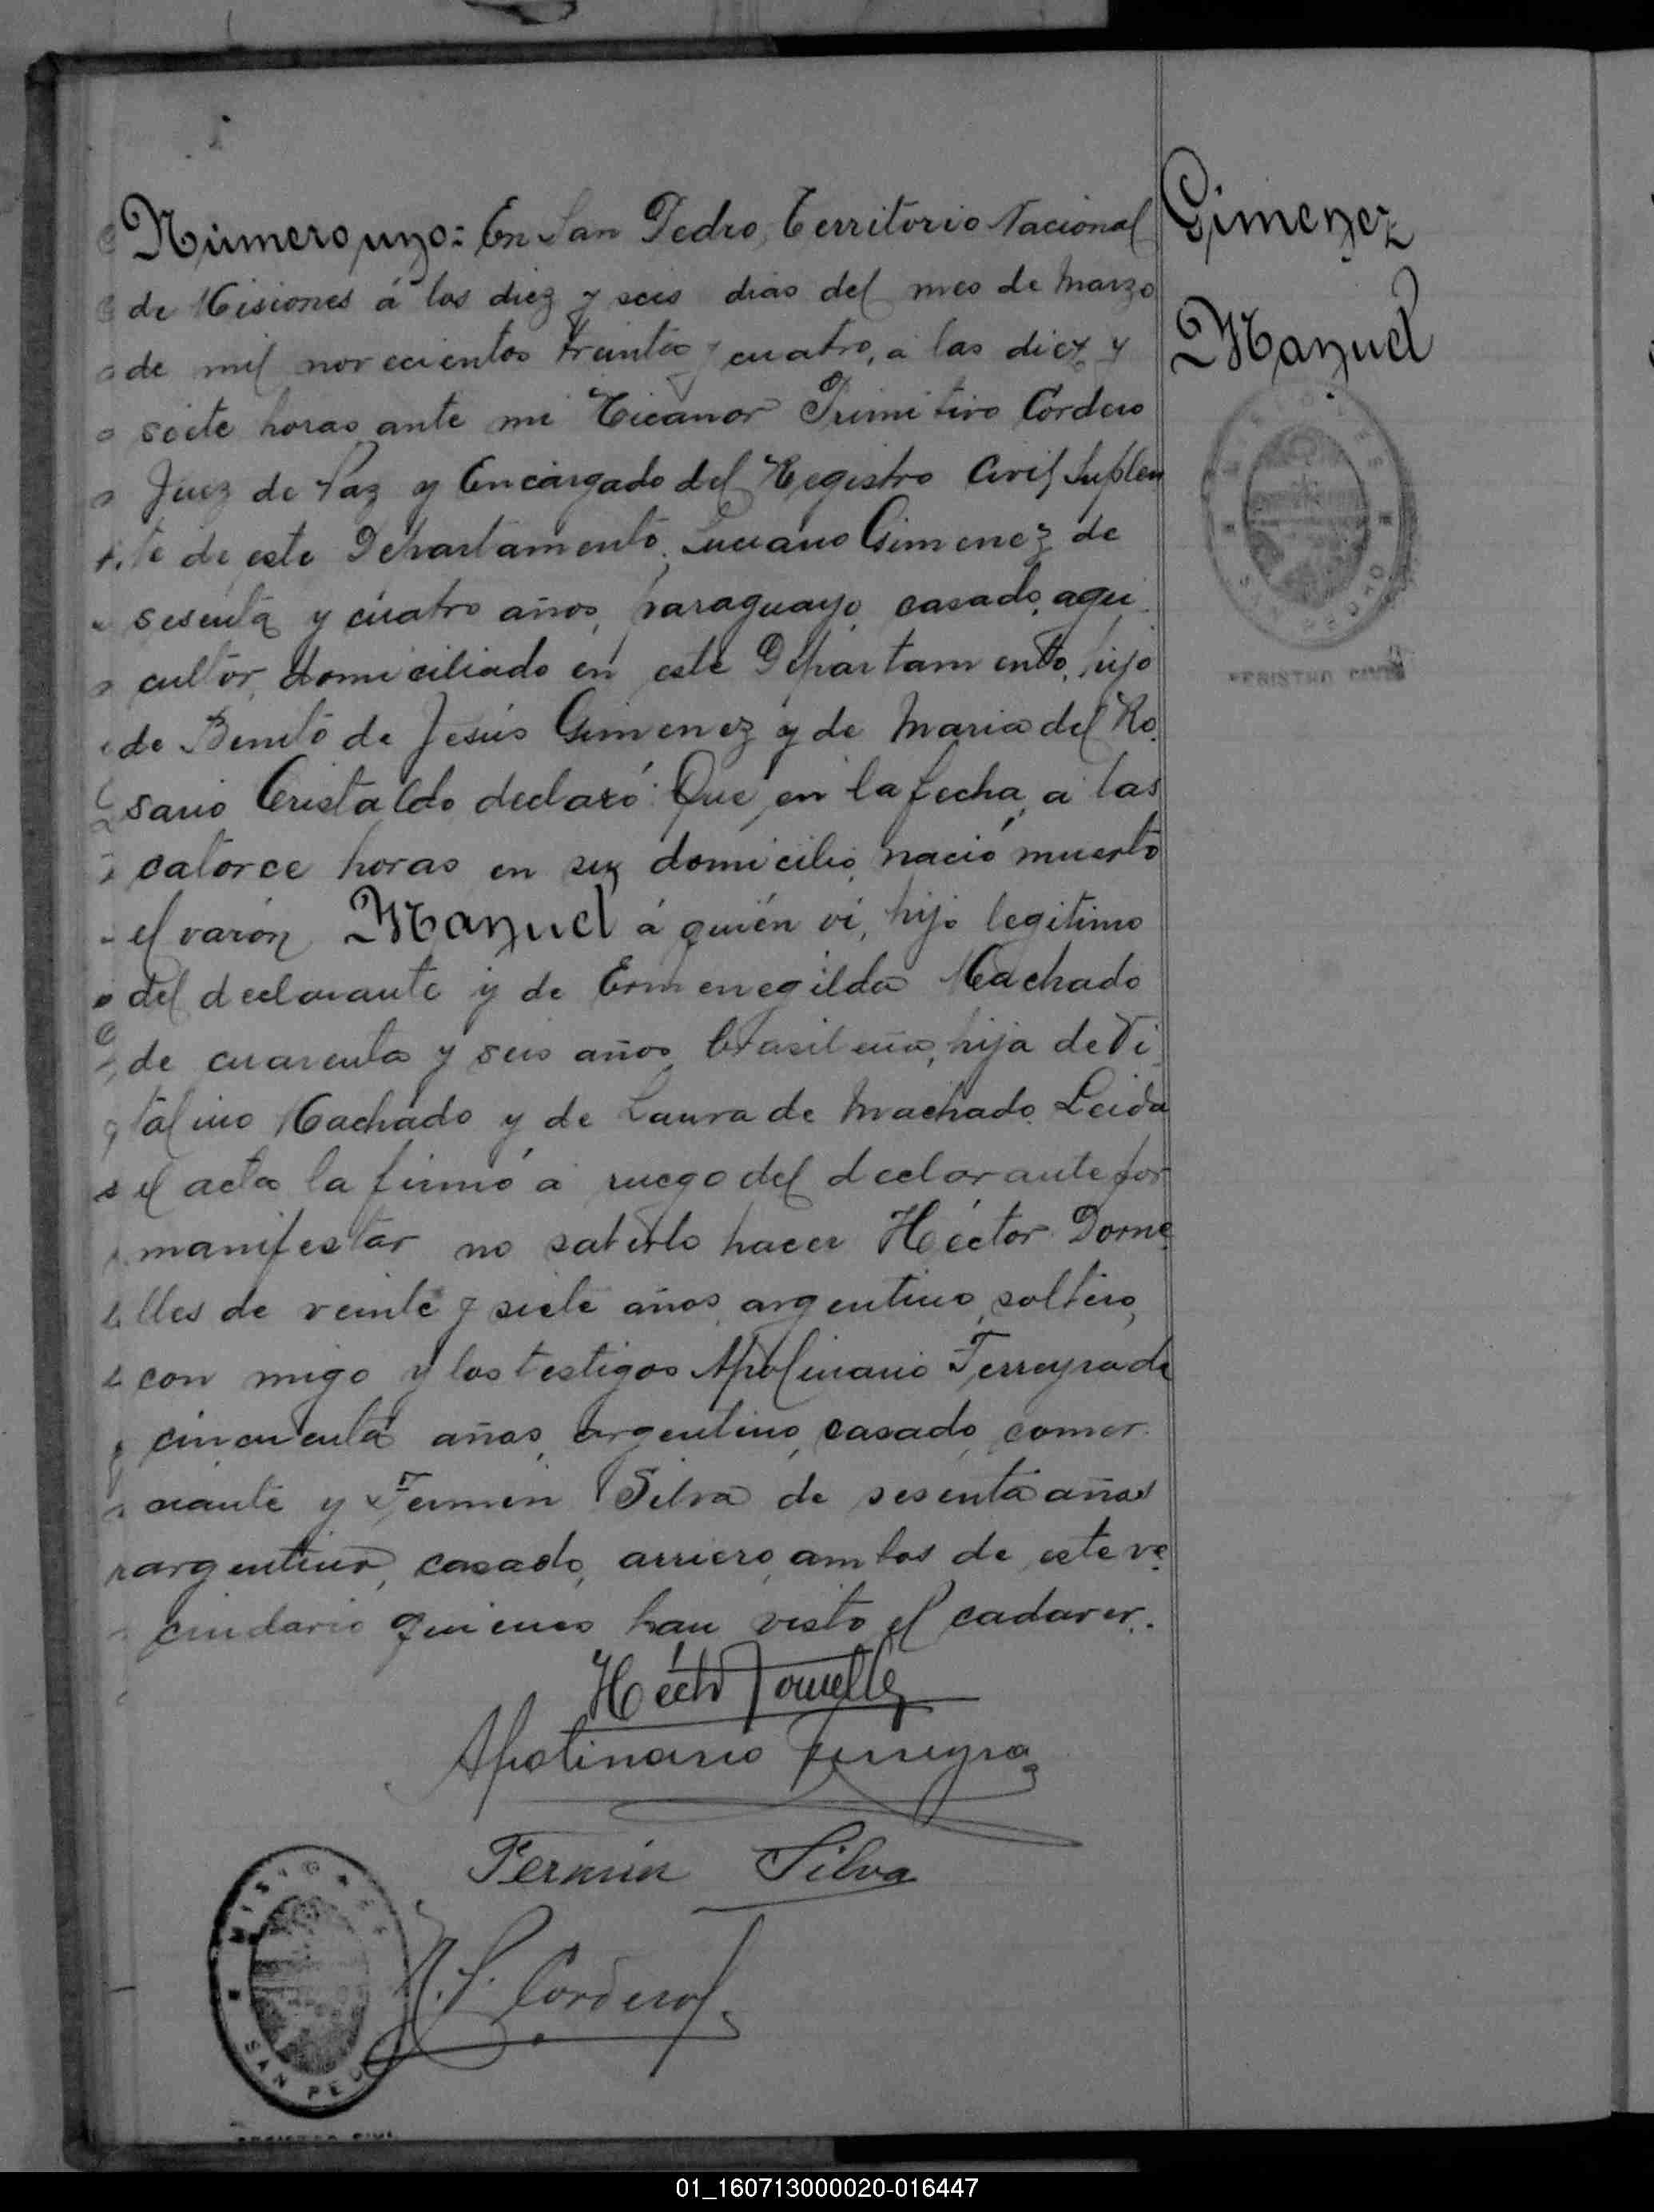 Número uno: En San Pedro, Territorio Nacional
Gimenez
de Misiones á los diez y seis dias del mes de Marzo
Manuel
de mil novecientos treinta y cuatro, a las diez y
siete horas ante mi Nicanor Primitivo Cordero
Juez de Paz y Encargado del Registro Civil Suplen
te de este Departamento, Luciano Gimenez de
sesenta y cuatro años, paraguayo, casado, agri
cultor, domiciliado en este Departamento, hijo
de Benito de Jesús Gimenez y de Maria del Ro
sario Cristaldo declaró: Que en la fecha, a las
catorce horas en su domicilio, nació muerto
el varón Manuel á quién vi, hijo legitimo
del declarante y de Ermenegilda Machado
de cuarenta y seis años, brasileña, hija de Vi
talino Machado y de Laura de Machado. Leida
el acta la firmó a ruego del declarante por
manifestar no saberlo hacer Héctor Dorne
lles de veinte y siete años, argentino, soltero,
con migo y los testigos Apolinario Ferreyra de
cincuenta años, argentino, casado, comer
ciante y Fermin Silva de sesenta años
argentino, casado, arriero, ambos de este ve
cindario quienes han visto el cadaver.
Héctor Dornelles
Apolinario Ferreyra
Fermín Silva
N. P. Cordero
MISIONES
SAN PEDRO
REGISTRO CIVIL
MISIONES
SAN PEDRO
REGISTRO CIVIL
01_160713000020-016447